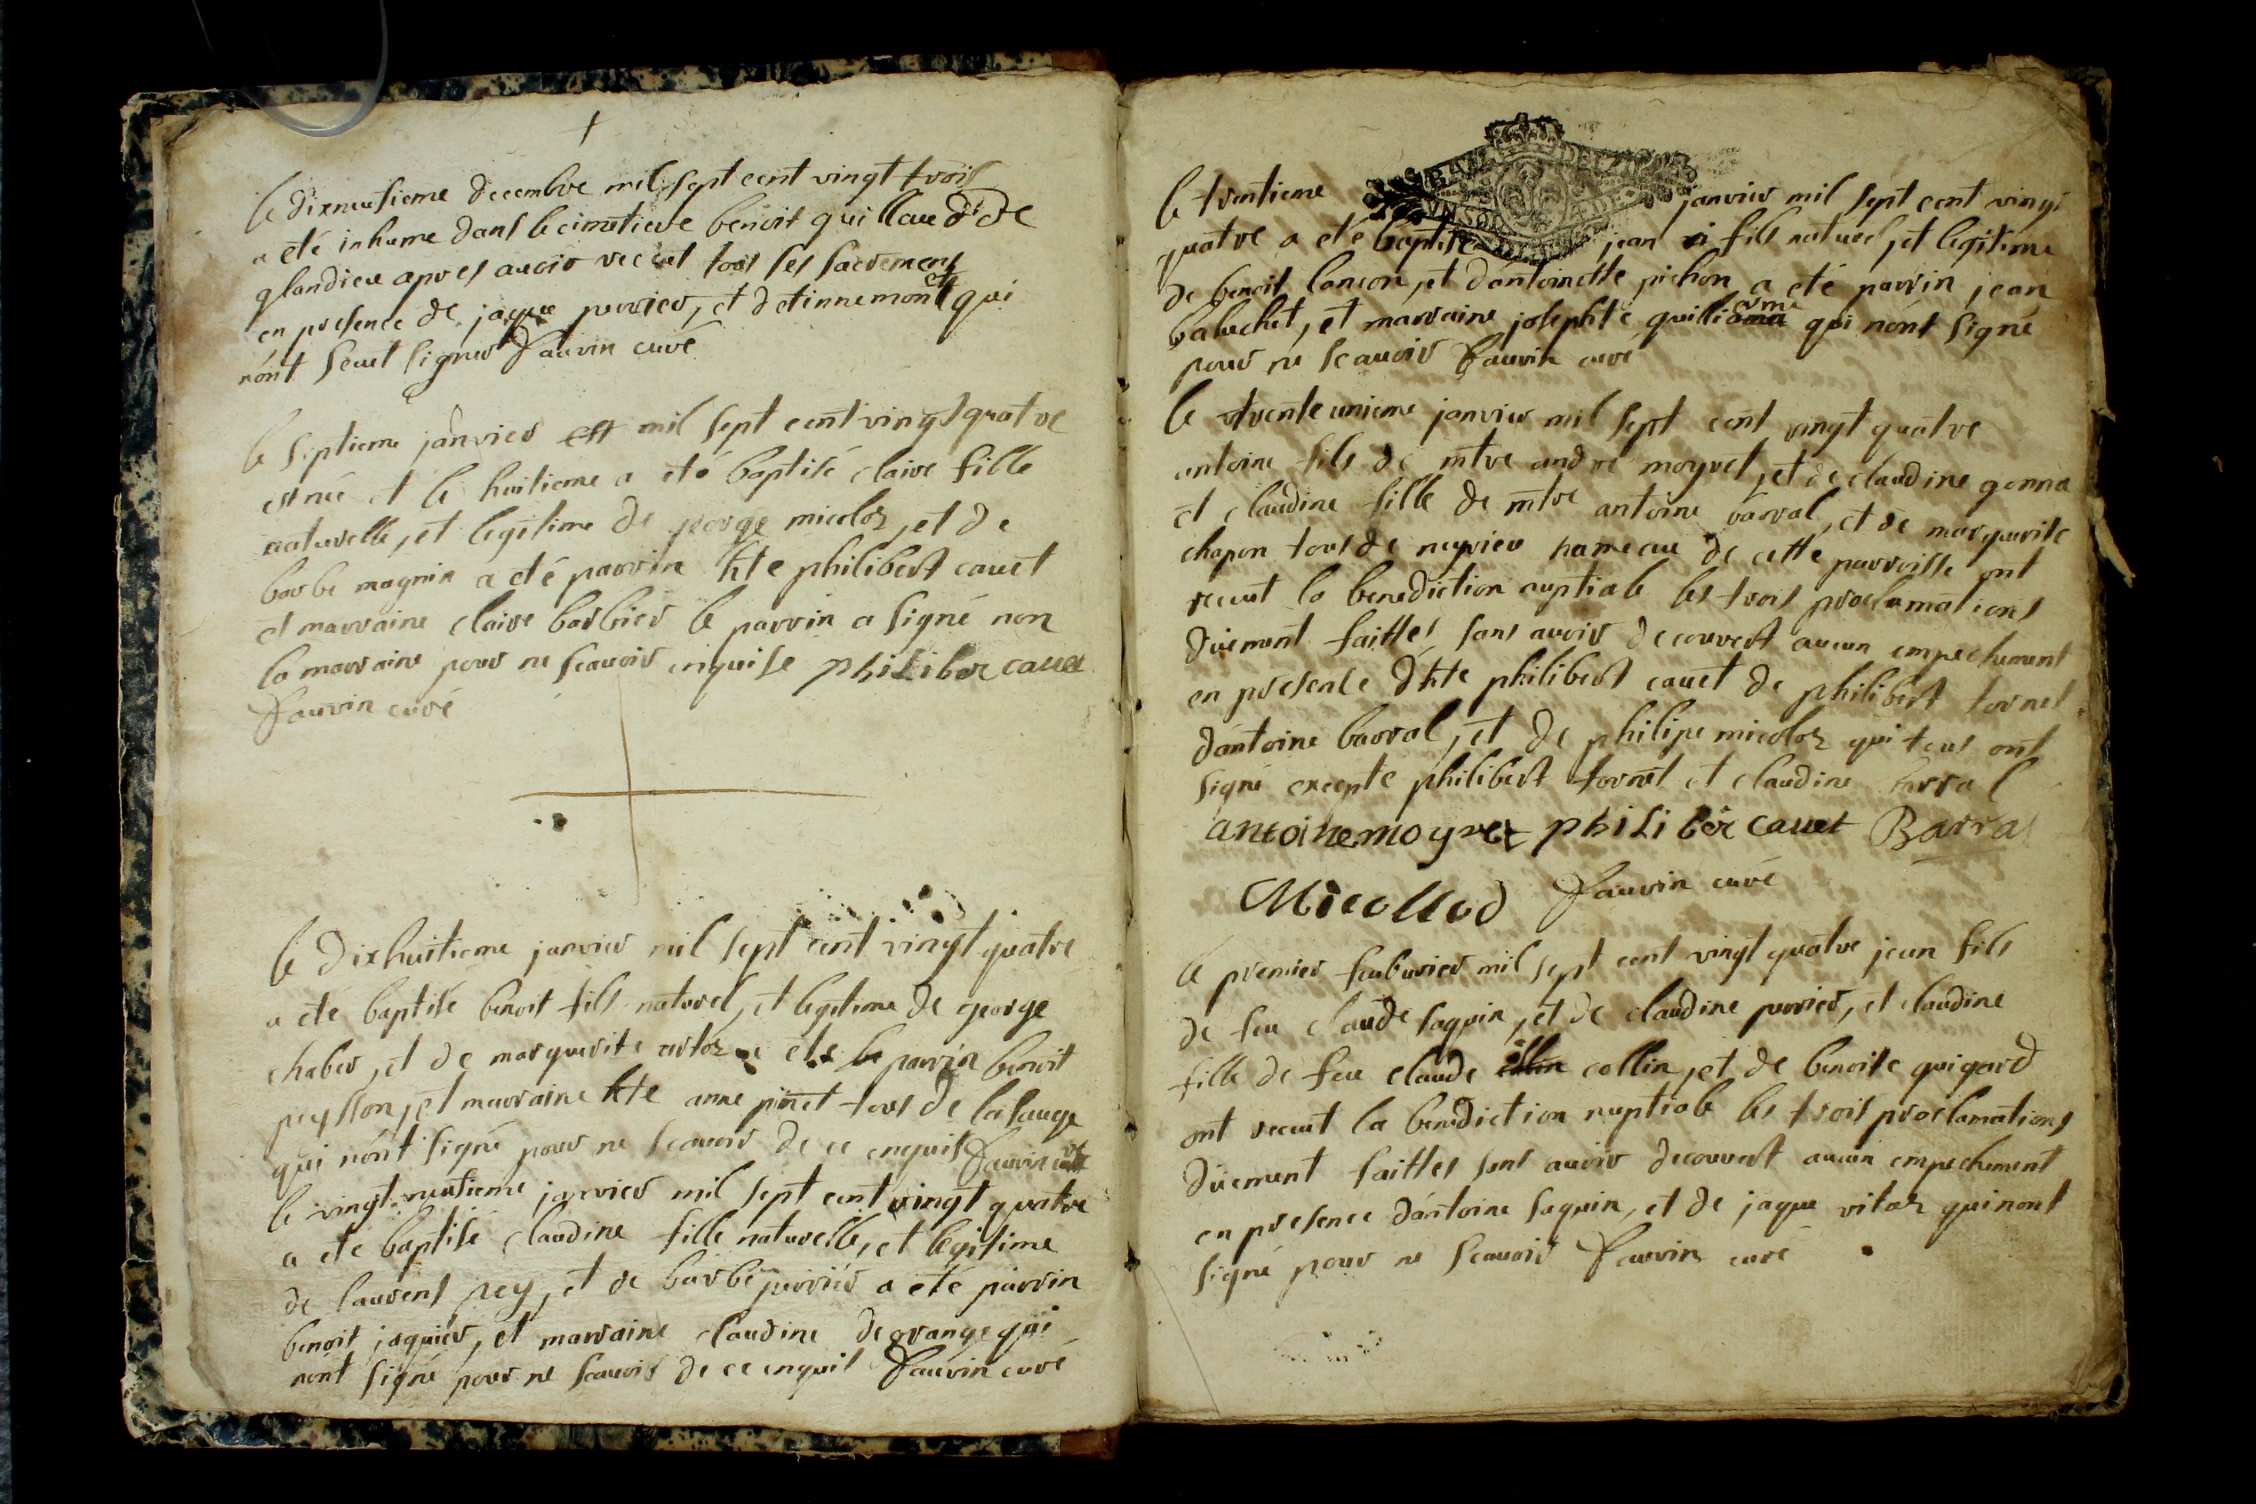 le dixneufieme decembre mil sept cent vingt trois
a eté inhume dans le cimetiere benoit qui llaud de
glandieu apres auoir receut tous ses sacremens
en presence de jaque perrier, et detinnemont qui
nónt seut signer Fauvin curé
le septieme janvier mil sept cent vingt quatre
est née et le huitieme a eté baptisé claire fille
naturelle, et legitime de george micoloz, et de
barbe magnin a eté parrin hte philibert cauet
et marraine claire barbier le parrin a signé non
la marraine pour ne scauoir enquise philiber cauet
Fauvin curé
le dixhuitieme janvier mil sept cent vingt quatre
a eté baptisé benoit fils naturel, et legitime de george
chaber, et de marguerite a eté parrin benoit
peysson, et marraine hte anne pinet tous de lalauge
qui nónt signé pour ne scauoir de ce enquis Fauvin curé
le vingt neufieme janvier mil sept cent vingt quatre
a eté baptisé claudine fille naturelle, et legitime
de laurens pey, et de barbe perrier a eté parrin
benoit jaquier, et marraine claudine degrange qui
nont signé pour ne scauoir de ce enquis Fauvin curé
le trentieme janvier mil sept cent vingt
quatre a eté baptisé jean fils naturel, et legitime
de benoit lancon, et dántoinette pichon a eté parrin jean
baluchet, et marraine josephte quillierme qui nónt signé
pour ne scauoir Fauvin curé
le trente unieme janvier mil sept cent vingt quatre
antoine fils de mtre andre moyret, et de claudine gonna
et claudine fille de mtre antoine barral, et de marguerite
chapon tous de neyrieu hameau de cette parroisse ont
receut la benediction nuptiale les trois proclamations
düement faittes, sans auoir decouvert aucun empechement
en presence dhte philibert cauet de philibert tornet
dántoine barral, et de philipe micoloz qui tous ont
signé excepte philibert tornet et claudine barral
antoine moyret philiber cauet Barral
Micollod Fauvin curé
le premier feuburier mil sept cent vingt quatre jean fils
de feu claude saquin, et de claudine perrier, et claudine
fille de feu claude collin, et de benoite guigard
ont receut la benediction nuptiale les trois proclamations
düement faittes sans auoir decouvert aucun empechement
en presence dántoine saquin, et de jaque vitoz qui nont
signé pour ne scauoir Fauvin curé